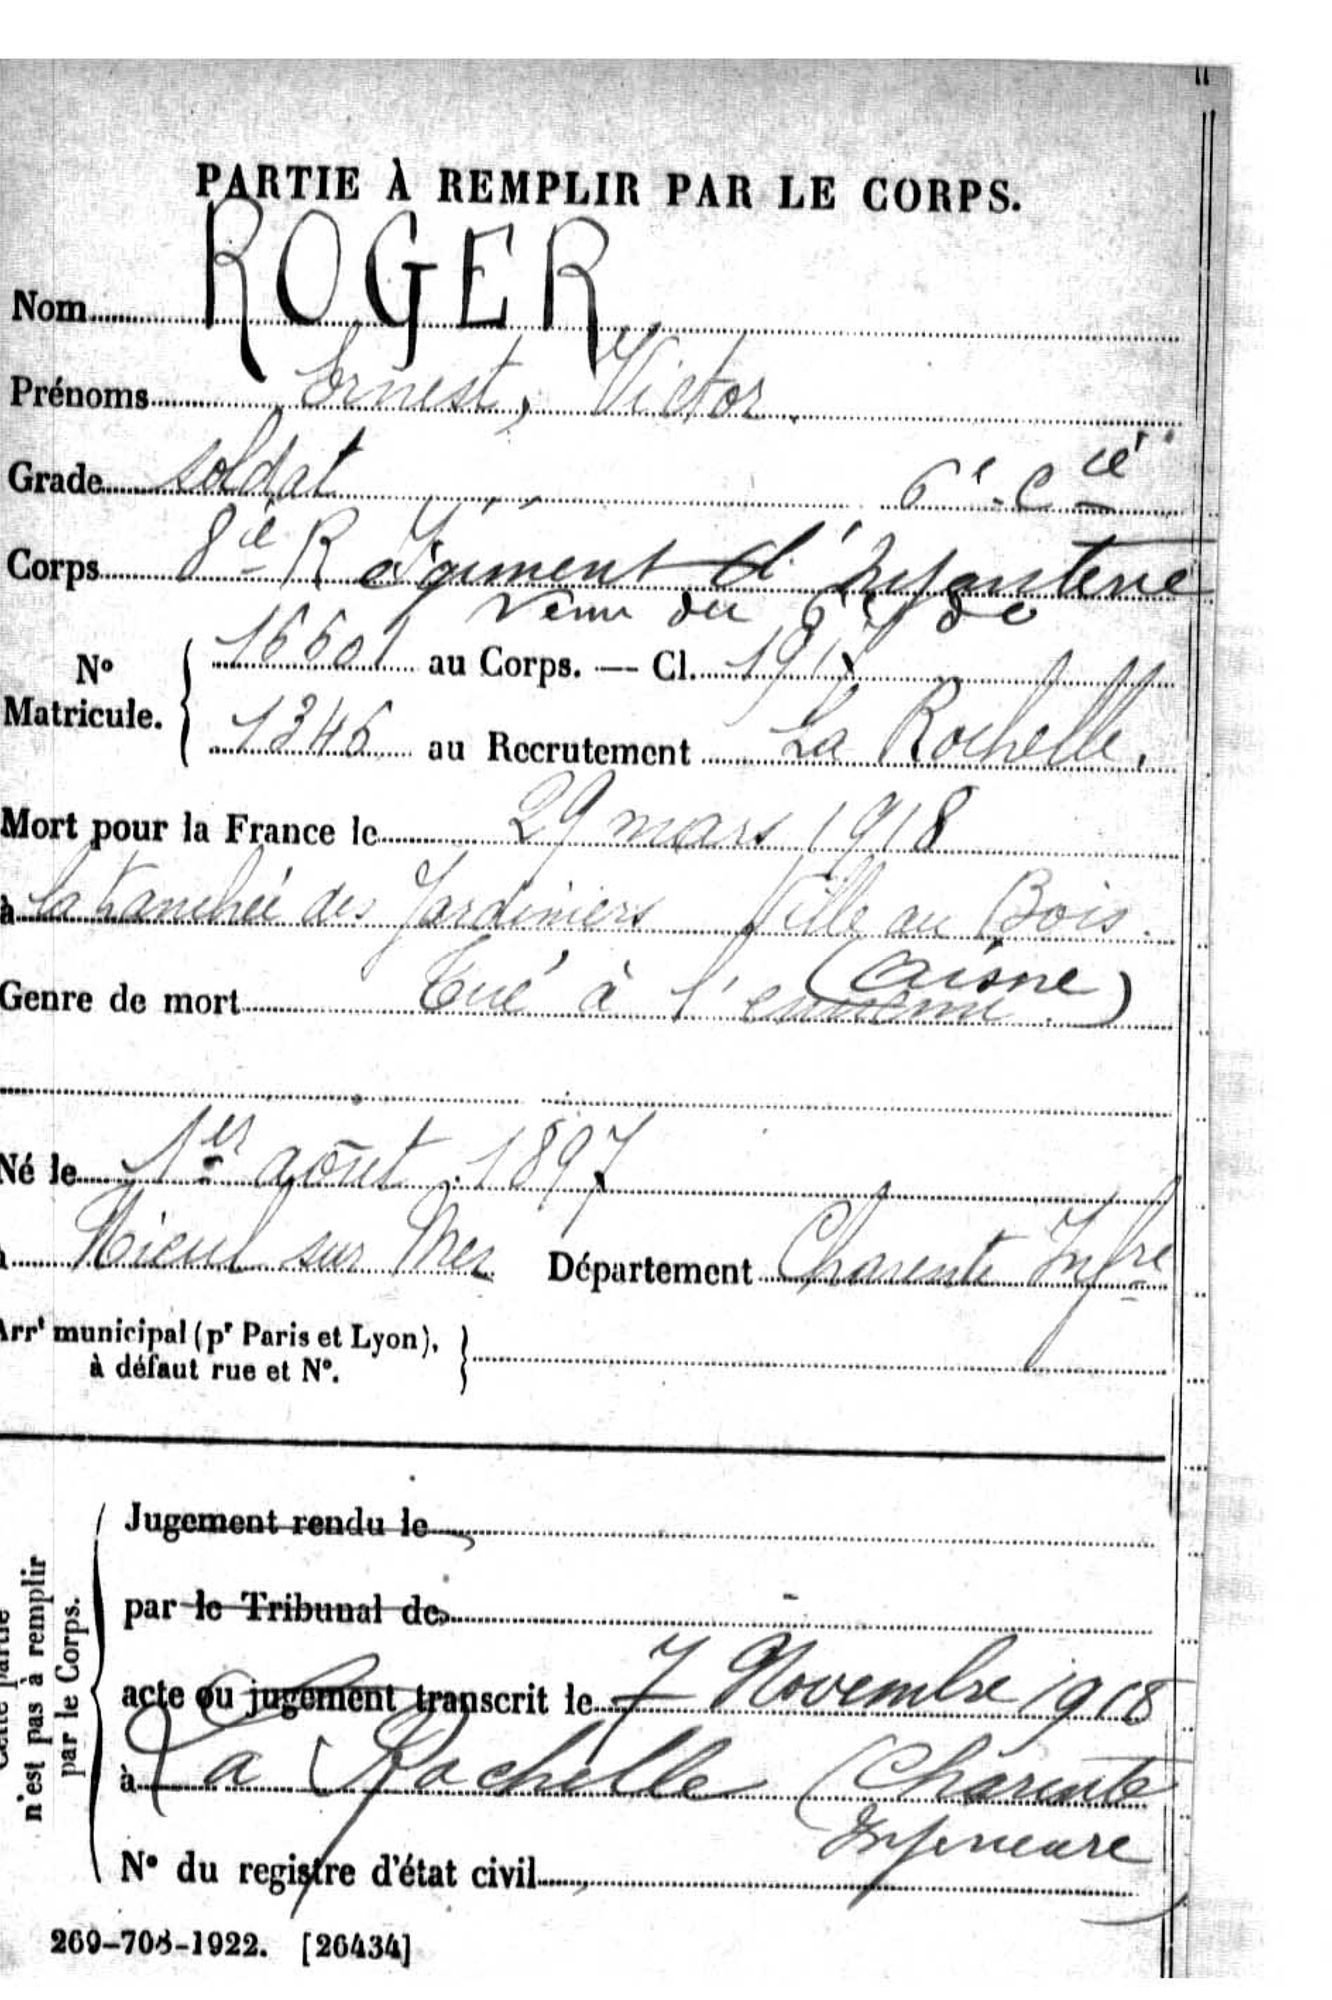 PARTIE À REMPLIR PAR LE CORPS.
Nom ROGER
Prénoms Ernest, Victor.
Grade soldat 6e Cie
Corps 8e Régiment d'Infanterie
Venu du 6e do
No Matricule. 16601 au Corps. — Cl. 1917
1346 au Recrutement La Rochelle.
Mort pour la France le 29 mars 1918
à la tranchée des Jardiniers Ville au Bois.
(Aisne)
Genre de mort Tué à l'ennemi.
Né le 1er août 1897
à Nieul sur Mer Département Charente Infre
Arrt municipal (pr Paris et Lyon),
à défaut rue et No.
Cette partie
n'est pas à remplir
par le Corps.
Jugement rendu le
par le Tribunal de
acte ou jugement transcrit le 7 Novembre 1918
à La Rochelle (Charente
Inférieure
No du registre d'état civil
269-708-1922. [26434]